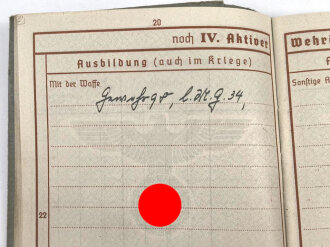 20
noch IV. Aktiver
Wehr
Ausbildung (auch im Kriege)
Mit der Waffe
Sonstige
Gewehr 98, l.M.G. 34,
22